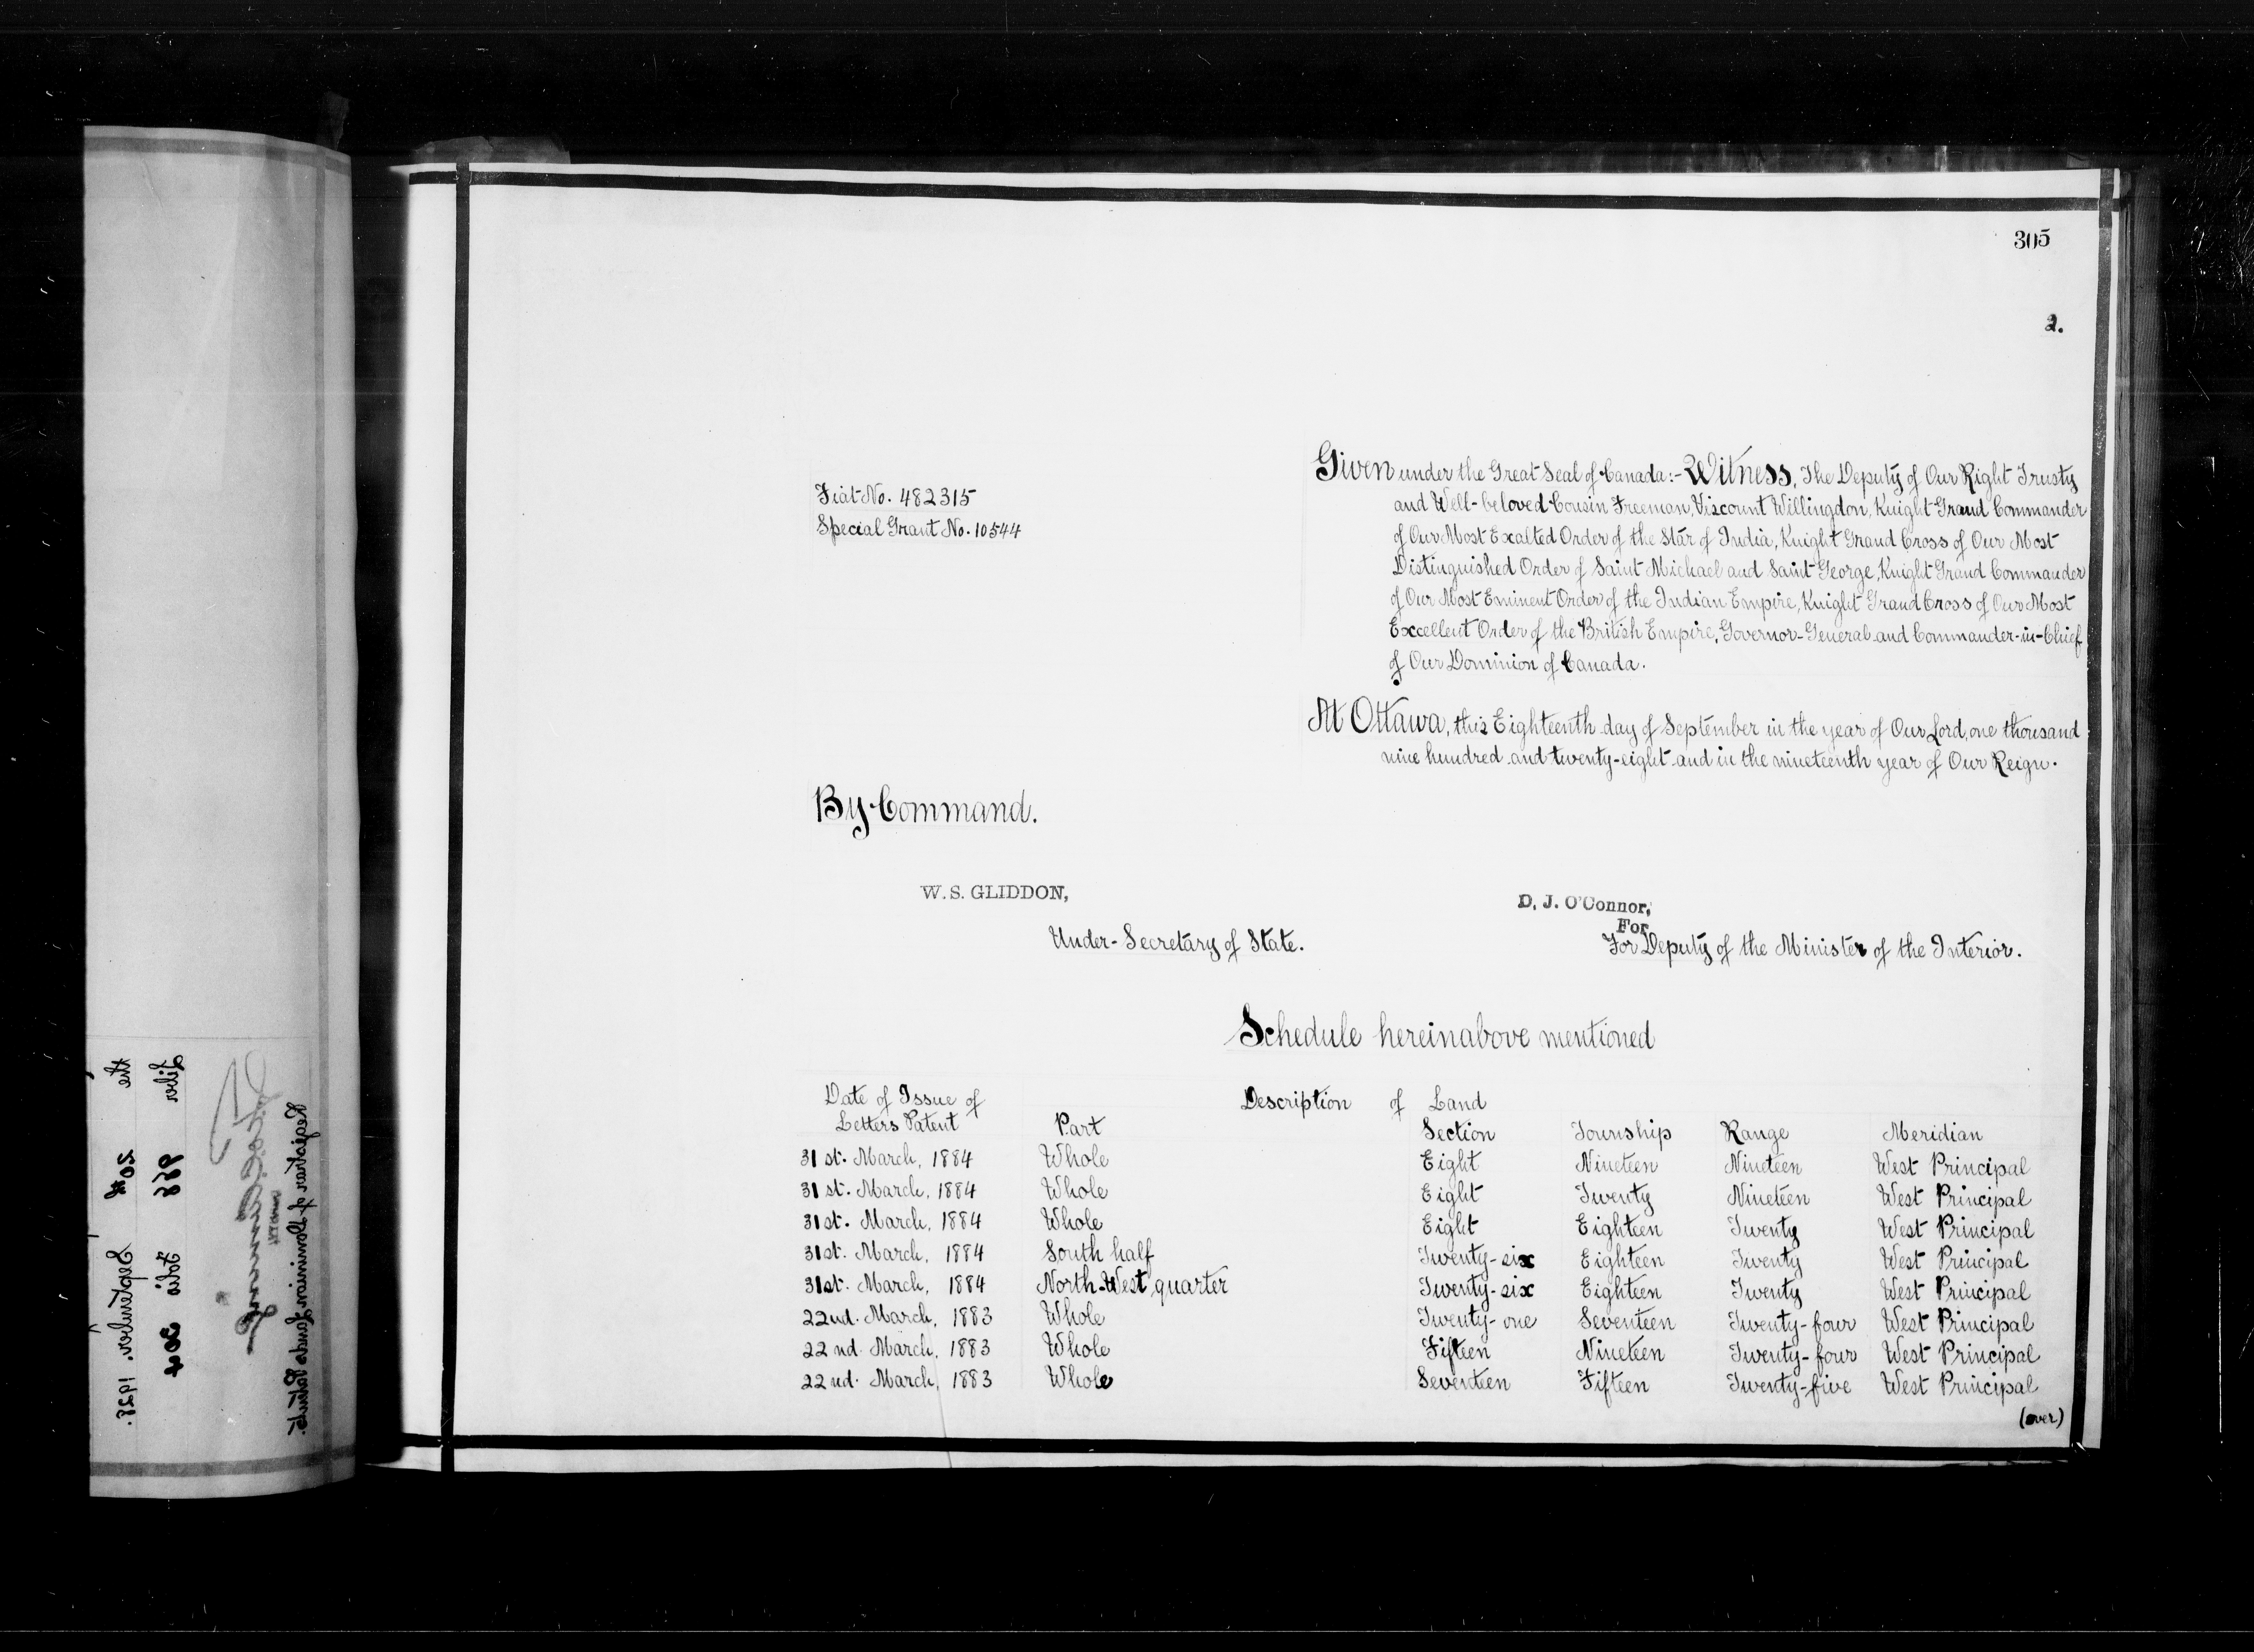 305
2.
Fiat No. 482315
Special Grant No. 10544
Given under the Great Seal of Canada:- Witness, The Deputy of Our Right Trusty
and Well-beloved Cousin Freeman, Viscount Willingdon, Knight Grand Commander
of Our Most Exalted Order of the Star of India, Knight Grand Cross of Our Most
Distinguished Order of Saint Michael and Saint George, Knight Grand Commander
of Our Most Eminent Order of the Indian Empire, Knight Grand Cross of Our Most
Excellent Order of the British Empire, Governor-General and Commander-in-Chief
of Our Dominion of Canada.
At Ottawa, this Eighteenth day of September in the year of Our Lord, one thousand
nine hundred and twenty-eight and in the nineteenth year of Our Reign.
By Command.
W. S. GLIDDON,
Under-Secretary of State.
D. J. O'Connor,
For
For Deputy of the Minister of the Interior.
Schedule hereinabove mentioned
Date of Issue of Description of Land
Letters Patent Part Section Township Range Meridian
31st. March, 1884 Whole Eight Nineteen Nineteen West Principal
31st. March, 1884 Whole Eight Twenty Nineteen West Principal
31st. March, 1884 Whole Eight Eighteen Twenty West Principal
31st. March, 1884 South half Twenty-six Eighteen Twenty West Principal
31st. March, 1884 North-West quarter Twenty-six Eighteen Twenty West Principal
22nd. March, 1883 Whole Twenty-one Seventeen Twenty-four West Principal
22nd. March, 1883 Whole Fifteen Nineteen Twenty-four West Principal
22nd. March, 1883 Whole Seventeen Fifteen Twenty-five West Principal
(over)
Liber 968 Folio 304
the 20th September, 1928.
Registrar of Dominion Lands Patents.